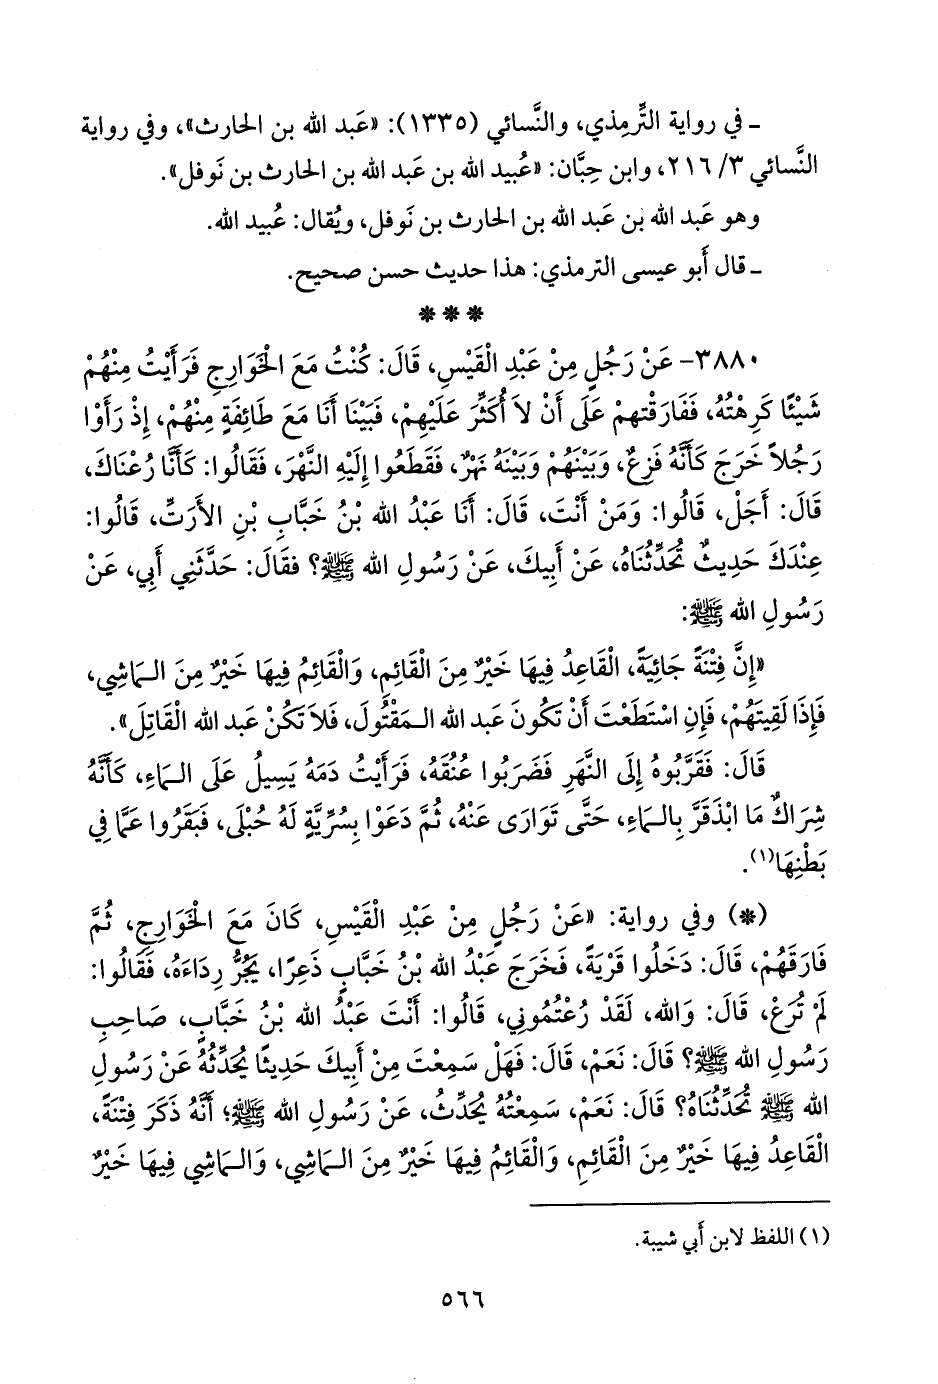 ـ في رواية التِّرمِذي، والنَّسائي (١٣٣٥): «عَبد الله بن الحارث»، وفي رواية
النَّسائي ٣/ ٢١٦، وابن حِبَّان: «عُبيد الله بن عَبد الله بن الحارث بن نَوفل».
وهو عَبد الله بن عَبد الله بن الحارث بن نَوفل، ويُقال: عُبيد الله.
ـ قال أَبو عيسى الترمذي: هذا حديث حسن صحيح.
* * *
٣٨٨٠- عَنْ رَجُلٍ مِنْ عَبْدِ الْقَيْسِ، قَالَ: كُنْتُ مَعَ الْخَوَارِجِ فَرَأَيْتُ مِنْهُمْ
شَيْئًا كَرِهْتُهُ، فَفَارَقْتهمْ عَلَى أَنْ لاَ أُكَثِّرَ عَلَيْهِمْ، فَبَيْنَا أَنَا مَعَ طَائِفَةٍ مِنْهُمْ، إِذْ رَأَوْا
رَجُلاً خَرَجَ كَأَنَّهُ فَزِعٌ، وَبَيْنَهُمْ وَبَيْنَهُ نَهْرٌ، فَقَطَعُوا إِلَيْهِ النَّهْرَ، فَقَالُوا: كَأَنَّا رُعْنَاكَ،
قَالَ: أَجَلْ، قَالُوا: وَمَنْ أَنْتَ، قَالَ: أَنَا عَبْدُ الله بْنُ خَبَّابِ بْنِ الأَرَتِّ، قَالُوا:
عِنْدَكَ حَدِيثٌ تُحَدِّثُنَاهُ، عَنْ أَبِيكَ، عَنْ رَسُولِ الله ﷺ؟ فقَالَ: حَدَّثَنِي أَبِي، عَنْ
رَسُولِ الله ﷺ:
«إِنَّ فِتْنَةً جَائِيَةً، الْقَاعِدُ فِيهَا خَيْرٌ مِنَ الْقَائِمِ، وَالْقَائِمُ فِيهَا خَيْرٌ مِنَ الـمَاشِي،
فَإِذَا لَقِيتَهُمْ، فَإِنِ اسْتَطَعْتَ أَنْ تَكُونَ عَبد الله الـمَقْتُولَ، فَلاَ تَكُنْ عَبد الله الْقَاتِلَ».
قَالَ: فَقَرَّبُوهُ إِلَى النَّهَرِ فَضَرَبُوا عُنُقَهُ، فَرَأَيْتُ دَمَهُ يَسِيلُ عَلَى الـمَاءِ، كَأَنَّهُ
شِرَاكٌ مَا ابْذَقَرَّ بِالـمَاءِ، حَتَّى تَوَارَى عَنْهُ، ثُمَّ دَعَوْا بِسُرِّيَّةٍ لَهُ حُبْلَى، فَبَقَرُوا عَمَّا فِي
بَطْنِهَا(١).
(*) وفي رواية: «عَنْ رَجُلٍ مِنْ عَبْدِ الْقَيْسِ، كَانَ مَعَ الْخَوَارِجِ، ثُمَّ
فَارَقَهُمْ، قَالَ: دَخَلُوا قَرْيَةً، فَخَرَجَ عَبْدُ الله بْنُ خَبَّابٍ ذَعِرًا، يَجُرُّ رِدَاءَهُ، فَقَالُوا:
لَمْ تُرَعْ، قَالَ: وَالله، لَقَدْ رُعْتُمُونِي، قَالُوا: أَنْتَ عَبْدُ الله بْنُ خَبَّابٍ، صَاحِبِ
رَسُولِ الله ﷺ؟ قَالَ: نَعَمْ، قَالَ: فَهَلْ سَمِعْتَ مِنْ أَبِيكَ حَدِيثًا يُحَدِّثُهُ عَنْ رَسُولِ
الله ﷺ تُحَدِّثُنَاهُ؟ قَالَ: نَعَمْ، سَمِعْتُهُ يُحَدِّثُ، عَنْ رَسُولِ الله ﷺ؛ أَنَّهُ ذَكَرَ فِتْنَةً،
الْقَاعِدُ فِيهَا خَيْرٌ مِنَ الْقَائِمِ، وَالْقَائِمُ فِيهَا خَيْرٌ مِنَ الـمَاشِي، وَالـمَاشِي فِيهَا خَيْرٌ
(١) اللفظ لابن أَبي شيبة.
٥٦٦